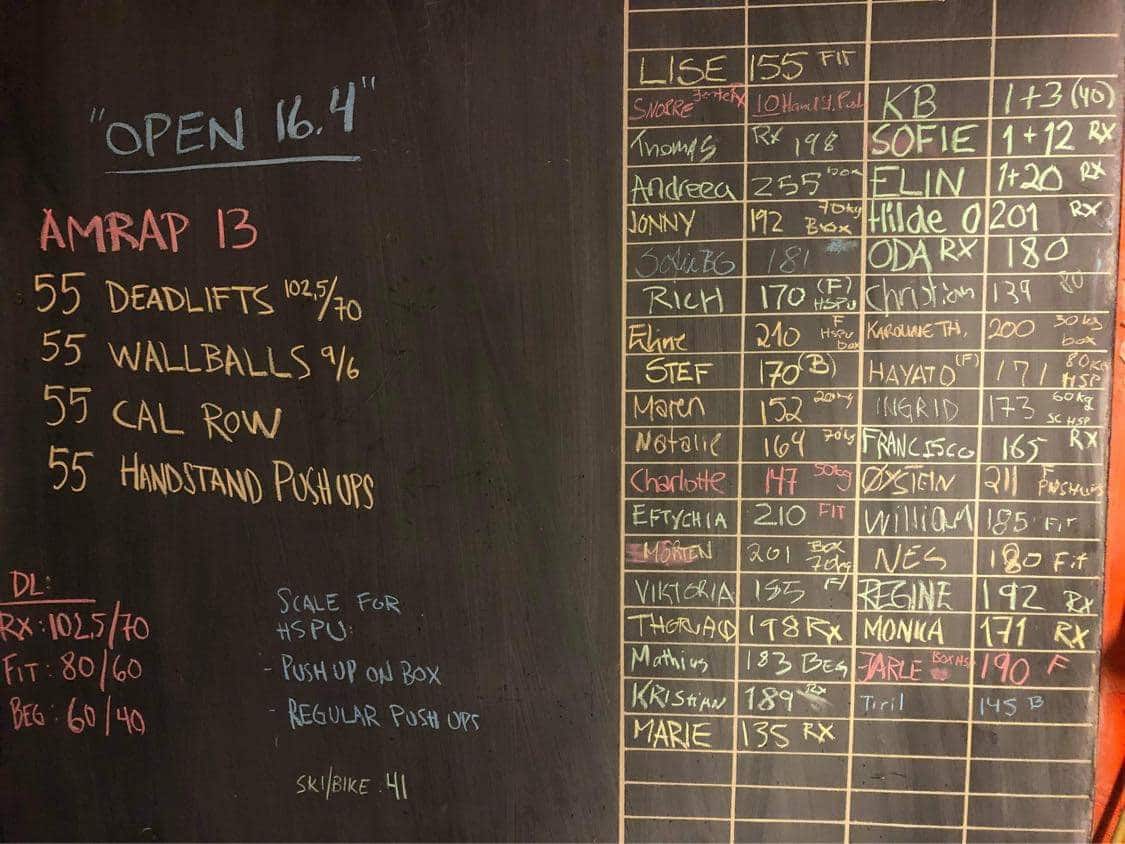 "OPEN 16.4"
AMRAP 13
55 DEADLIFTS 102,5/70
55 WALLBALLS 9/6
55 CAL ROW
55 HANDSTAND PUSH UPS
DL:
RX: 102,5/70
FIT: 80/60
BEG: 60/40
SCALE FOR
HSPU:
- PUSH UP ON BOX
- REGULAR PUSH UPS
SKI/BIKE: 41
LISE 155 FIT
SNORRE 10
KB 1+3 (40)
Thomas RX 198
SOFIE 1+12 RX
Andreea 255
ELIN 1+20 RX
JONNY 192 70kg Box
Hilde O 201 RX
181
ODA RX 180
RICH 170 (F) HSPU
Christian 139 80
Eline 210 F HSPU box
KAROLINE TH. 200 30kg box
STEF 170 (B)
HAYATO (F) 171 80kg HSP
Maren 152 20kg
INGRID 173 60kg SC HSP
Natalie 164 70kg
FRANCISCO 165 RX
Charlotte 147 50kg
ØYSTEIN 211 F PUSHUPS
EFTYCHIA 210 FIT
William 185 Fit
MORTEN 201 BOX 70kg
NES 180 Fit
VIKTORIA 185 F
REGINE 192 RX
198 RX
MONICA 171 RX
Mathius 183 BEG
JARLE 190 F
KRistian 189 RX
Tiril 145 B
MARIE 135 RX